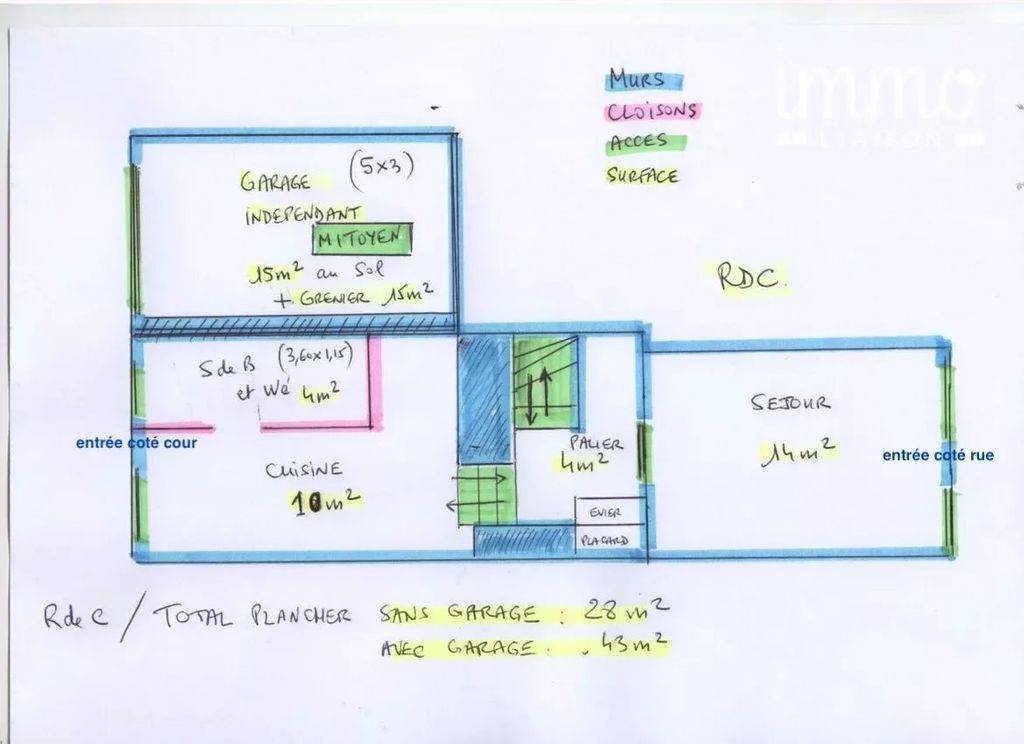 immo
LIAISON
MURS
CLOISONS
ACCES
SURFACE
GARAGE (5x3)
INDEPENDANT
MITOYEN
15m² au Sol
+ GRENIER 15m²
RDC.
S de B (3,60x1,15)
et Wc 4m²
SEJOUR
14m²
entrée coté cour
entrée coté rue
PALIER
4m²
CUISINE
10m²
EVIER
PLACARD
RdeC / TOTAL PLANCHER SANS GARAGE : 28m²
AVEC GARAGE : 43m²